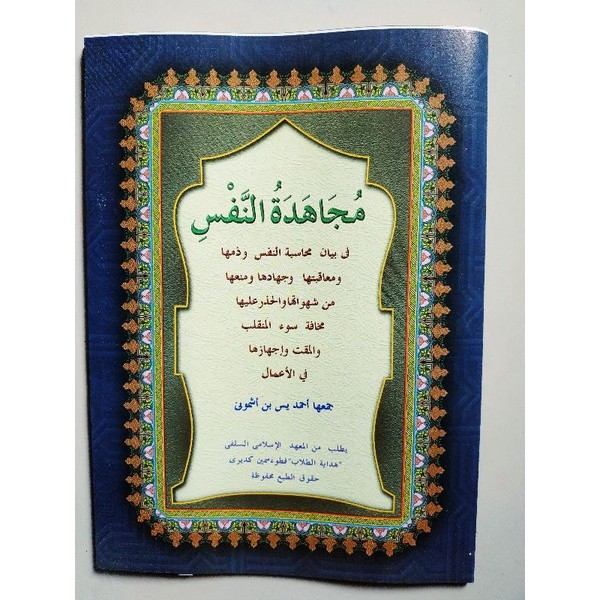 مُجَاهَدَةُ النَّفْسِ
فى بيان محاسبة النفس وذمها
ومعاقبتها وجهادها ومنعها
من شهواتها والحذر عليها
مخافة سوء المنقلب
والمقت وإجهازها
في الأعمال
جمعها أحمد يس بن أشمونى
يطلب من المعهد الإسلامى السلفى
"هداية الطلاب" فطوء سمبن كديرى
حقوق الطبع محفوظة